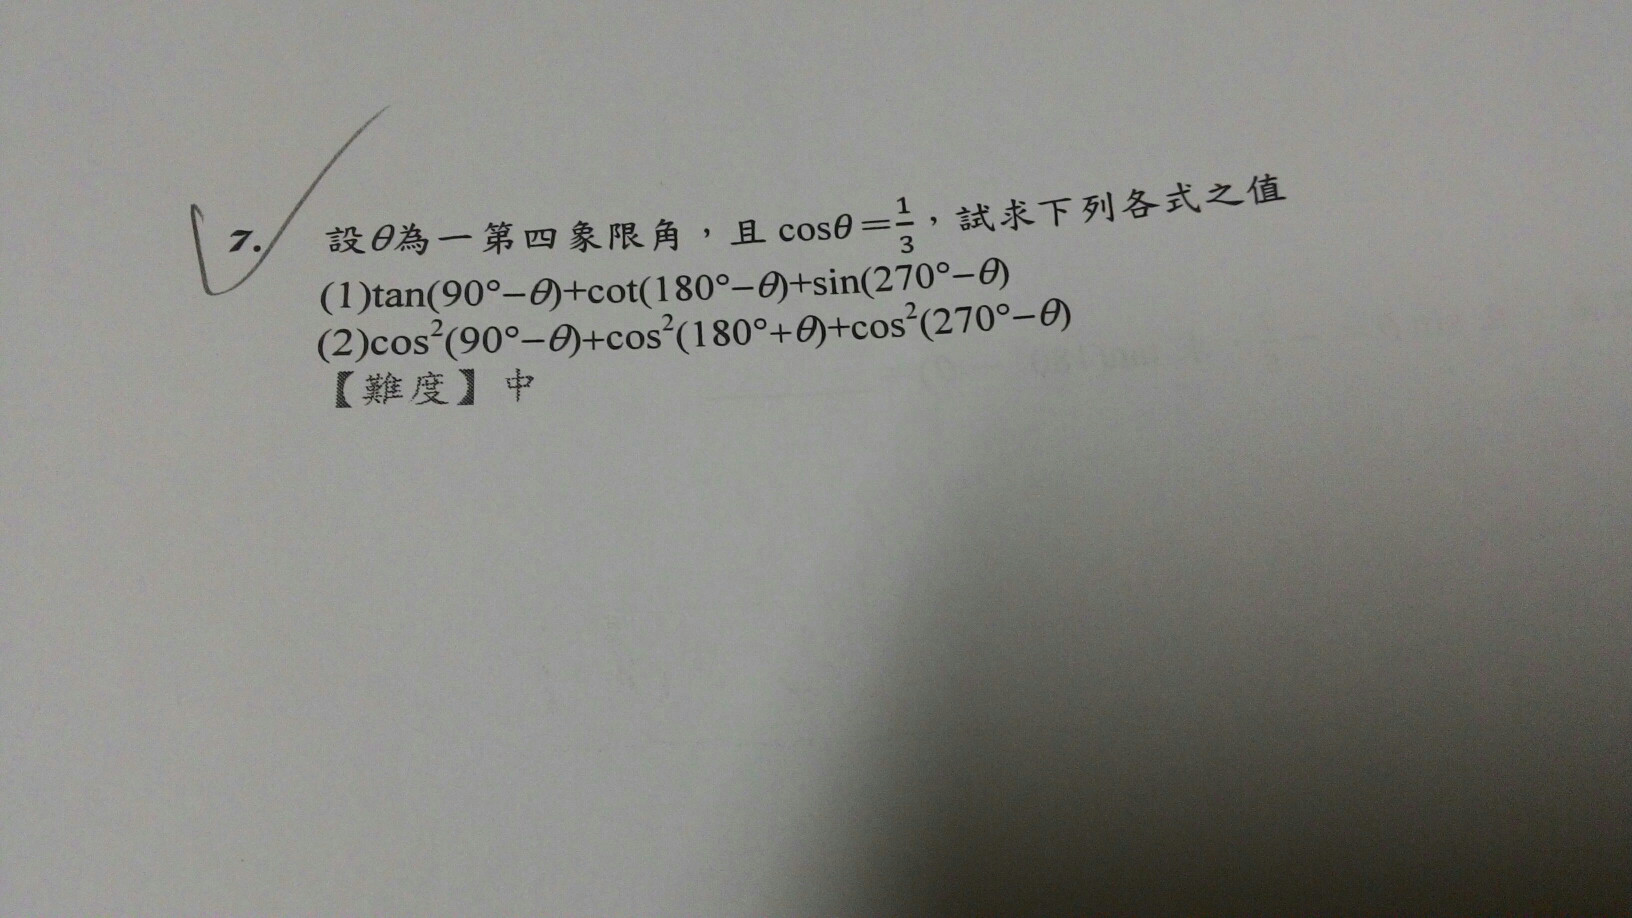 7. 設θ為一第四象限角，且 cosθ＝1/3，試求下列各式之值
(1)tan(90°−θ)+cot(180°−θ)+sin(270°−θ)
(2)cos²(90°−θ)+cos²(180°+θ)+cos²(270°−θ)
【難度】中